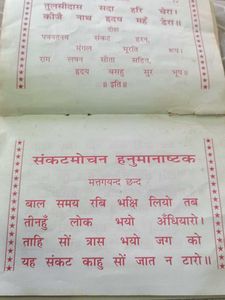 तुलसीदास सदा हरि चेरा।
कीजै नाथ हृदय महँ डेरा॥
दोहा
पवनतनय संकट हरन,
मंगल मूरति रूप।
राम लखन सीता सहित,
हृदय बसहु सुर भूप॥
॥ इति॥
संकटमोचन हनुमानाष्टक
मत्तगयन्द छन्द
बाल समय रबि भक्षि लियो तब
तीनहुँ लोक भयो अँधियारो।
ताहि सों त्रास भयो जग को
यह संकट काहु सों जात न टारो॥